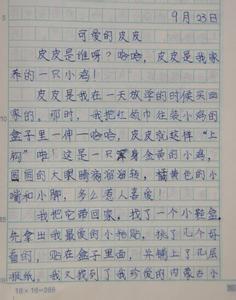 9月23日
可爱的皮皮
皮皮是谁呀？哈哈，皮皮是我家
养的一只小鸡！
皮皮是我在一天放学的时候买回
家的。那时，我把红领巾往装小鸡的
盒子里一伸一伸的，皮皮就这样“上
钩”啦！这是一只浑身金黄的小鸡，
圆圆的大眼睛滴溜溜转，橘黄色的小
嘴和小脚，多么惹人喜爱！
我把它带回家，找了一个小鞋盒，
先拿出我最爱的小贴贴，挑了几个好
看的，贴在盒子里面，并铺上了几层
报纸。我又找到了我珍爱的内蒙古小
18×16=288